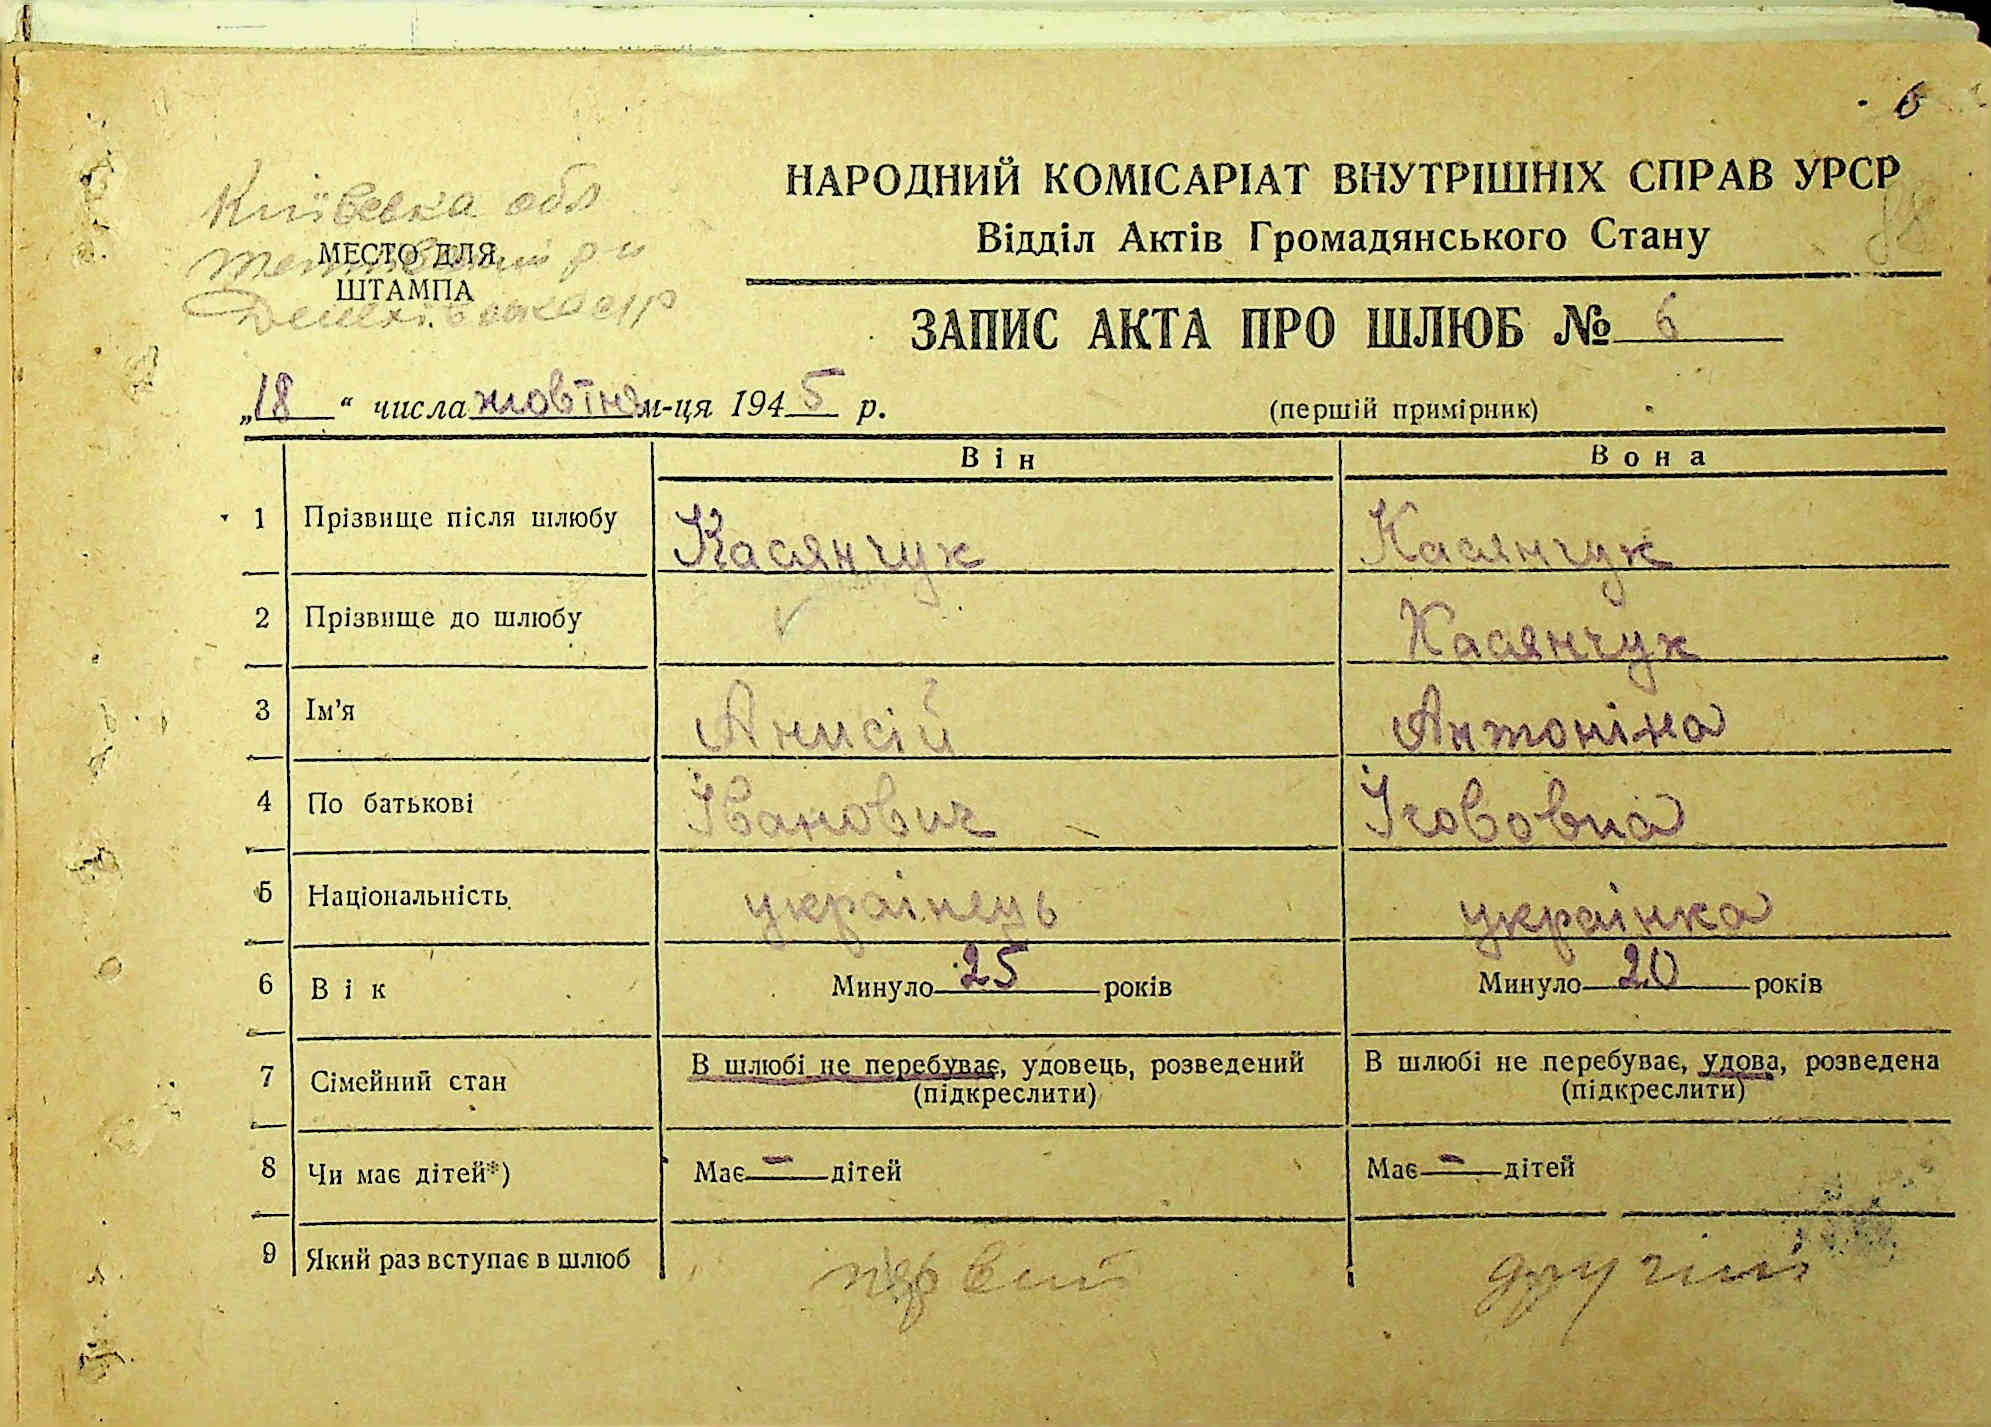 6
Київська обл
МЕСТО ДЛЯ
ШТАМПА
НАРОДНИЙ КОМІСАРІАТ ВНУТРІШНІХ СПРАВ УРСР
Відділ Актів Громадянського Стану
ЗАПИС АКТА ПРО ШЛЮБ № 6
„18“ числа жовтня м-ця 1945 р.
(першій примірник)
Він Вона
1 Прізвище після шлюбу Касянчук Касянчук
2 Прізвище до шлюбу Касянчук
3 Ім’я Анисій Антоніна
4 По батькові Іванович
5 Національність українець українка
6 Вік Минуло 25 років Минуло 20 років
7 Сімейний стан В шлюбі не перебуває, удовець, розведений В шлюбі не перебуває, удова, розведена
(підкреслити) (підкреслити)
8 Чи має дітей*) Має — дітей Має — дітей
9 Який раз вступає в шлюб первий другий